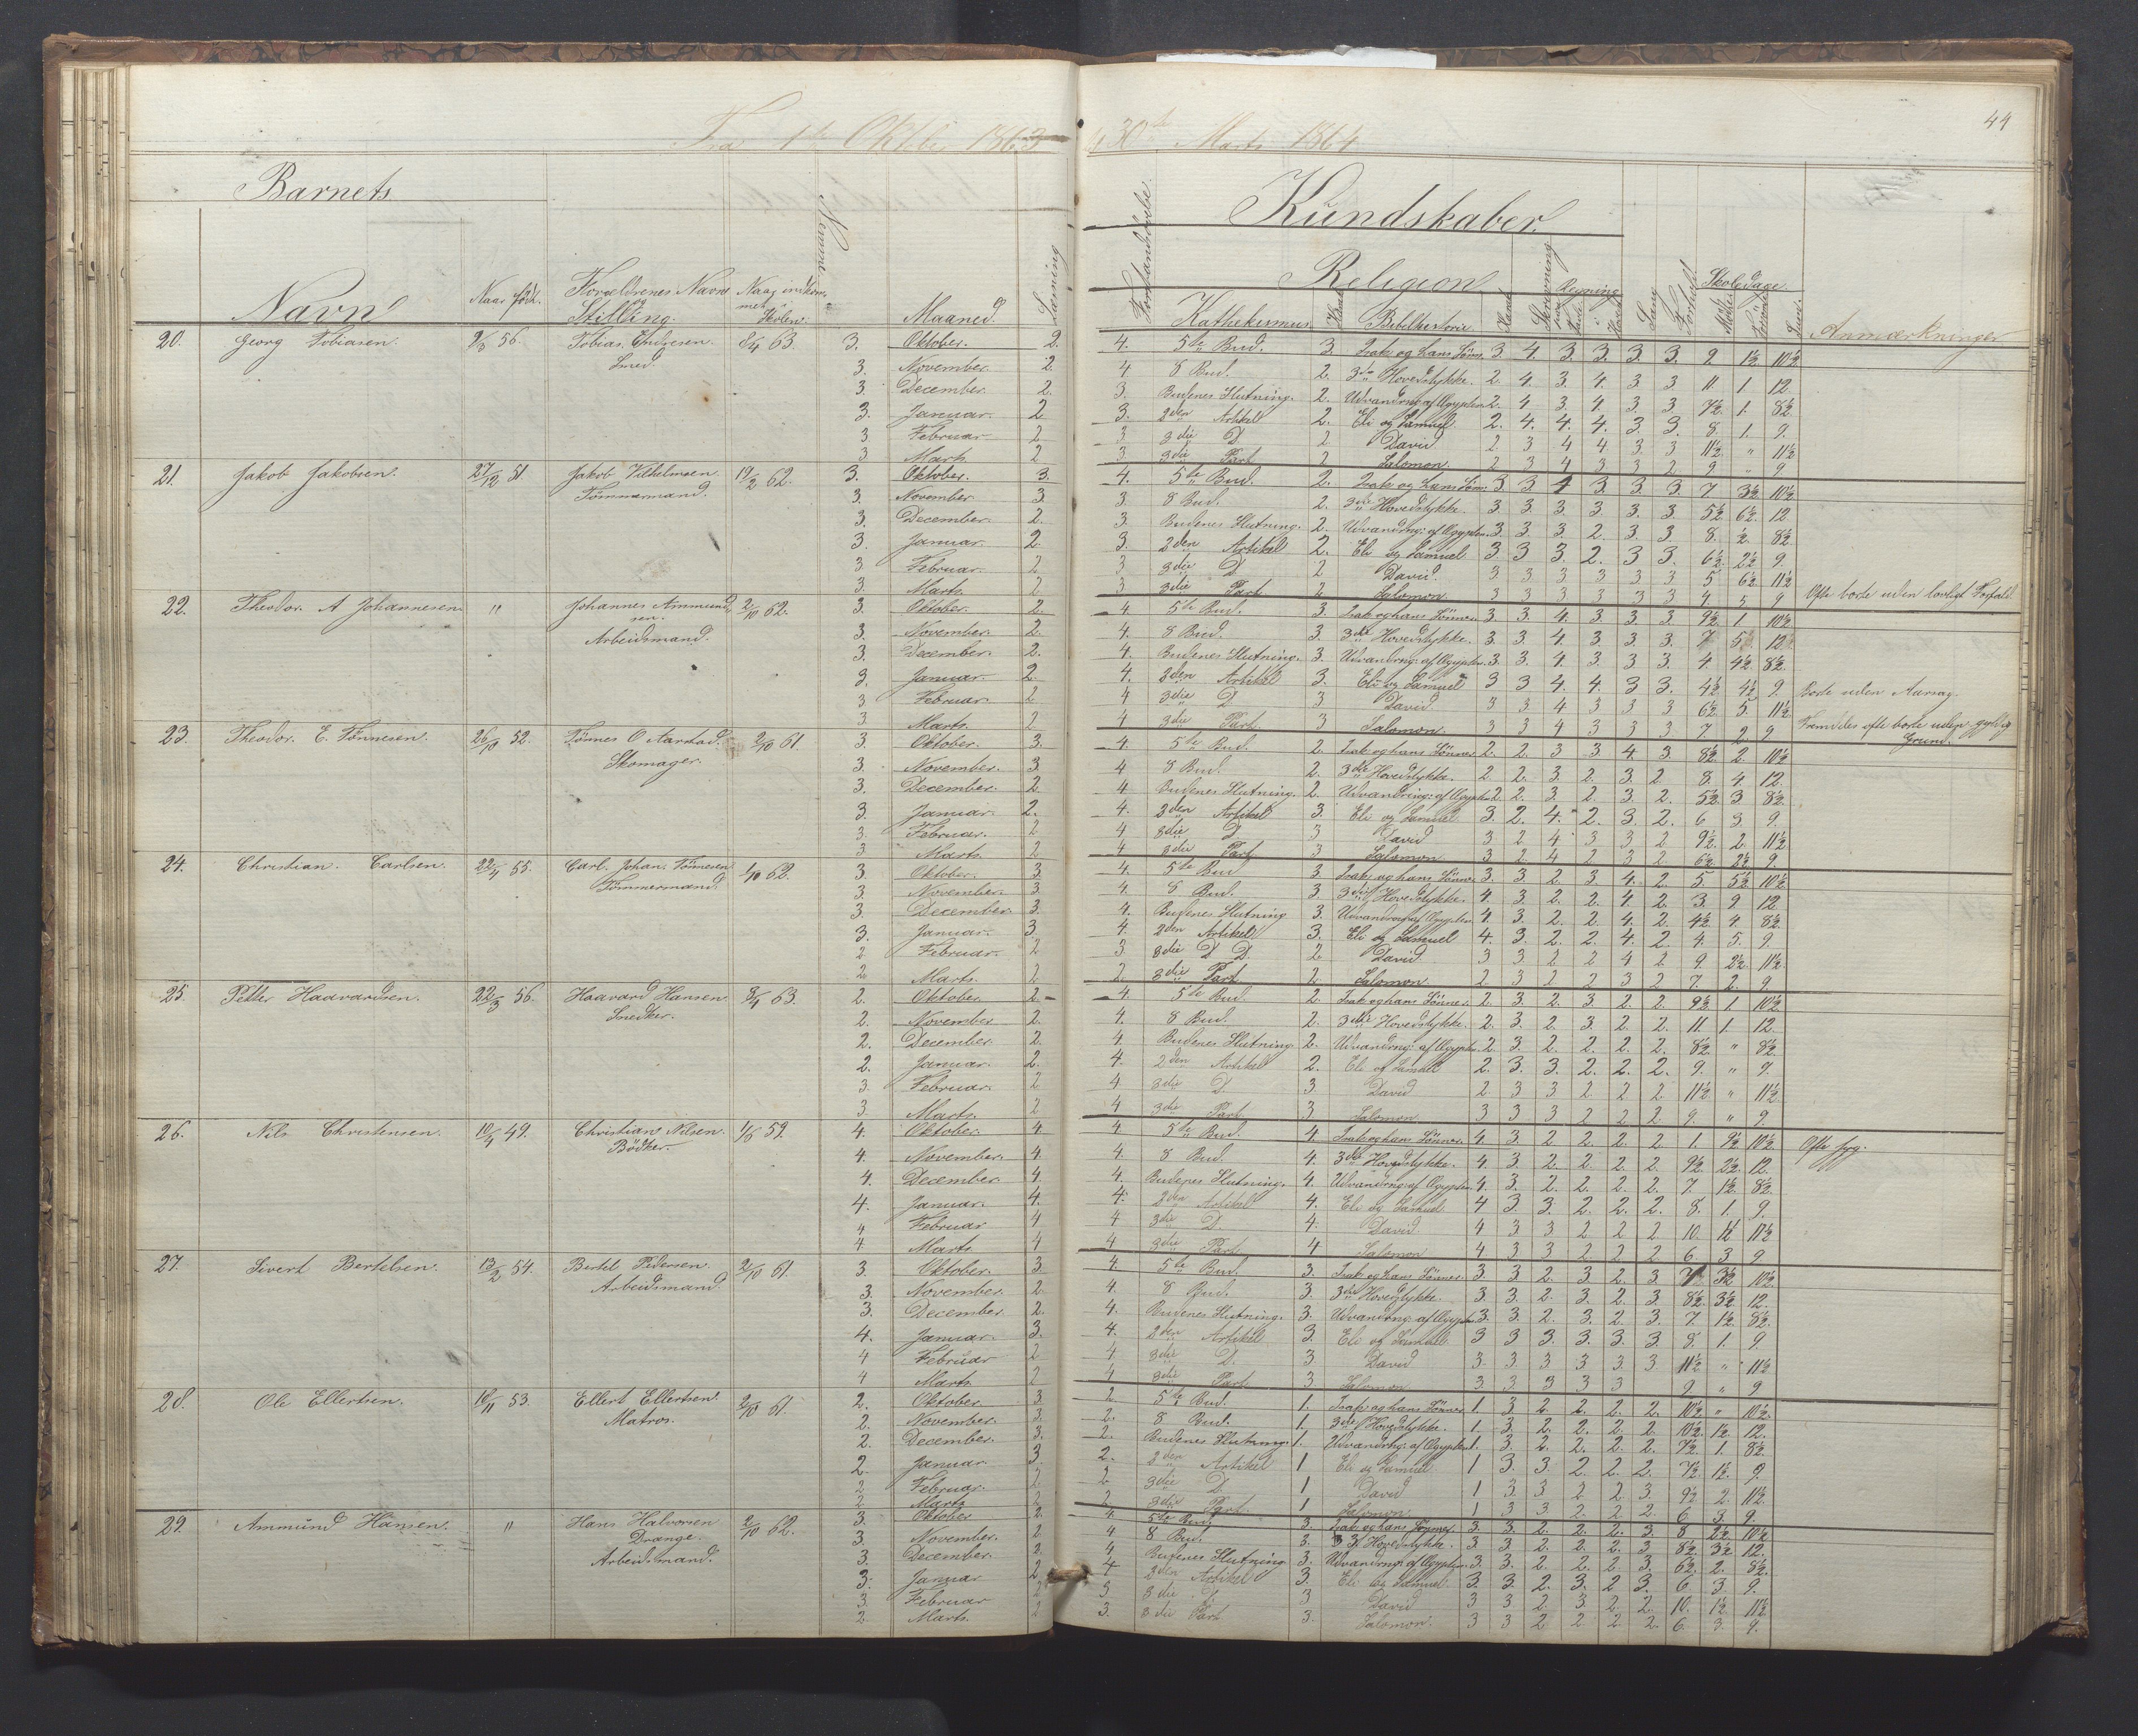 Fra 1ste Oktober 1863 til 30de Marts 1864
44
Barnets
Kundskaber.
Navn
Naar født.
Forældrenes Navn
Stilling.
Naar indkom-
met i
Skolen.
Nemme
Maaned.
Læsning
Forstandslære
Religion
Kathekismus
Bibelhistorie
Skrivning
Regning
Sang
Forhold
Skoledage
Mødte
Forsömte
Anmærkninger
20. Georg Tobiasen. 9/3 56. Tobias Endresen. 8/4 63. 3. Oktober. 2. 4. 5te Bud. 3. Isak og hans Sönn. 3. 4. 3. 3. 3. 3. 9 1½ 10½
Smed.
3. November. 2. 4 8 Bud. 2. 3die Hovedstykke. 2. 4. 3. 4. 3 3 11. 1. 12.
3. December. 2. 3. Budenes Slutning. 2. Udvandrng: af Ægypten 2. 4 3 4. 3 3 7½ 1. 8½
3. Januar. 2 3. 2den Artikel 2. Eli og Samuel. 2. 4. 4. 4. 3 3. 8. 1. 9.
3. Februar 2 3 3die D 2 David 2 3 4 4 3 3 11½ " 11½
3. Marts. 2 3. 3die Part 2 Salomon. 2 3 4 3 3 2 9 " 9
21. Jakob Jakobsen. 27/12 51. Jakob Vilhelmsen 19/2 62. 3. Oktober. 3. 4. 5te Bud. 2. Isak og hans Sön: 3. 3. 4 3. 3. 3. 7. 3½ 10½
Tömmermand.
3. November. 3 3 8 Bud. 2. 3die Hovedstykke. 3. 3. 3. 3. 3. 3. 5½ 6½ 12
3. December. 2. 3. Budenes Slutning. 2. Udvandrng: af Ægypten. 3. 3. 3. 2. 3. 3. 8. 2. 8½
3. Januar. 2. 3. 2den Artikel 2. Eli og Samuel 3 3 3. 2. 3 3. 6½ 2½ 9.
3 Februar. 2 3 3die D 2 David. 3 3 3 3 3 3 5 6½ 11½
3. Marts. 2 3 3die Part 2 Salomon. 3 3 3 3 3 3 4 5 9 Ofte borte uden lovligt Forfald.
22. Theodor. A Johannesen " Johannes Ammund 2/10 62. 3. Oktober. 2. 4 5te Bud. 3 Isak og hans Sönner. 3. 3. 4. 3. 3. 3. 9½ 1. 10½
sen.
Arbeidsmand.
3. November. 2. 4. 8 Bud. 3. 3die Hovedstykke. 3. 3 4. 3 3. 3. 7 5 12.
3. December. 2. 4. Budenes Slutning. 3. Udvandrng: af Ægypten. 3. 3. 4. 3. 3 3. 4. 4½ 8½
3. Januar. 2 4. 2den Artikel 3. Eli og Samuel 3 3 4. 4. 3 3. 4½ 4½ 9. Borte uden Aarsag.
3 Februar. 2 4 3die D 3 David 3 3 4 3 3 3 6½ 5. 11½
3. Marts. 2 4 3die Part 3 Salomon. 3 3 4 3 3 3 7. 2 9 Fremdeles ofte borte uden gyldig
Grund.
23. Theodor. E. Tönnesen. 26/10 52. Tönnes O Aarstad. 2/10 61. 3. Oktober. 3. 4. 5te Bud. 2. Isak og hans Sönner 2. 2. 3 3 4. 3. 8½ 2. 10½
Skomager.
3. November. 3. 4 8 Bud. 2. 3die Hovedstykke. 2 2. 3. 2. 3. 2. 8. 4 12.
3. December. 2 4 Budenes Slutning. 2. Udvandring: af Ægypten 2. 2. 3 2. 3. 2. 5½ 3 8½
3. Januar. 2. 4. 2den Artikel 3. Eli og Samuel 3. 2. 4. 2. 3. 2. 6 3 9.
3. Februar. 2 4 3die D. 3 David 3 2 4 3 3 2 9½ 2. 11½
3 Marts. 2 4 3die Part 3 Salomon 3 2 4 2 3 2. 6½ 2½ 9.
24. Christian. Carlsen. 22/4 55. Carl. Johan. Tönnesen 1/10 62. 3. Oktober. 3. 4. 5te Bud 3. Isak og hans Sönner 3. 3 2 3 4. 2. 5. 5½ 10½
Tömmermand.
3. November. 3 4. 8 Bud. 3 3die Hovedstykke. 4. 3. 2. 2. 4 2. 3. 9 12
3. December. 3. 4. Budenes Slutning 3. Udvandrng: af Ægypten 4. 3. 2. 2 4. 2. 4½ 4 8½
3. Januar. 3. 4. 2den Artikel 3. Eli og Samuel 4. 3. 2. 2. 4. 2. 4. 5. 9.
2 Februar. 2 3 3die D. 2 David 3 3 2 2 4 2 9. 2½ 11½
2 Marts. 2. 2. 3die Part 2. Salomon 2 3 2 2 3 2 7. 2. 9.
25. Petter Haavardsen. 22/3 56. Haavard Hansen 8/4 63. 2. Oktober. 2. 4. 5te Bud. 2. Isak og hans Sönner. 2. 3. 2. 3. 2. 2. 9½ 1. 10½
Snedker.
2. November 2. 4. 8 Bud. 2. 3die Hovedstykke. 2. 3. 2. 3. 2. 2. 11. 1. 12.
2. December. 2. 4. Budenes Slutning 2. Udvandrng: af Ægypten. 2 3. 2. 2. 2. 2. 8½ " 8½
2. Januar. 2. 4. 2den Artikel 2. Eli og Samuel 2. 3. 3. 2. 2. 2. 9. " 9.
3. Februar. 2 4 3die D 3. David 2 3 3 2 2 2 11½ " 11½
3. Marts. 2 4 3die Part 3 Salomon 3 3 3 2 2 2. 9. " 9.
26. Nils Christensen. 10/4 49. Christian Nilsen. 1/5 59. 4. Oktober. 4 4. 5te Bud. 4. Isak og hans Sönner. 4. 3. 2 2. 2. 2. 1. 9½ 10½ Ofte syg.
Bödker.
4. November. 4. 4. 8 Bud. 4. 3die Hovedstykke. 4. 3. 2. 2. 2. 2. 9½ 2½ 12.
4. December. 4. 4. Budenes Slutning. 4. Udvandrng: af Ægypten. 4. 3. 2. 2. 2. 2. 7. 1½ 8½
4. Januar. 4. 4. 2den Artikel 4. Eli og Samuel 4 3. 3. 2. 2. 2. 8. 1. 9.
4 Februar 4 4 3die D. 4. David 4 3 3 2 2 2 10. 1½ 11½
4. Marts. 4 4 3die Part 4 Salomon 4. 3 3 2. 2. 2 6. 3 9
27. Sivert Bertelsen. 13/2 54. Bertel Pedersen. 2/10 61. 3. Oktober. 3. 4. 5te Bud. 3. Isak og hans Sönner. 3. 3 2. 3. 2. 3. 7 3½ 10½
Arbeidsmand.
3. November. 2. 4. 8 Bud. 3 3die Hovedstykke 3. 3. 2. 3. 2. 3. 8½ 3½ 12.
3. December. 2. 4. Budenes Slutning. 3. Udvandrng: af Ægypten 3. 3. 2. 3. 2. 3. 7. 1½ 8½
4. Januar. 3. 4. 2den Artikel 3. Eli og Samuel 3 3 3. 3. 3. 3. 8. 1. 9.
4 Februar 2 4 3die D. 3. David 3. 3. 3 3 3. 3 11½ " 11½
4 Marts. 2 4 3die Part 3 Salomon 3. 3. 3 3 3 9 " 9
28. Ole Ellertsen. 16/11 53. Ellert Ellertsen. 2/10 61. 2. Oktober. 3 2 5te Bud. 1. Isak og hans Sönner 1. 3. 2. 2. 2. 2. 10½ " 10½
Matros.
2. November. 3. 2. 8 Bud. 1. 3die Hovedstykke. 1. 3 2. 2. 2. 2. 10½ 1½ 12.
2. December. 3. 2. Budenes Slutning. 1. Udvandrng: af Ægypten 1. 3. 2. 2. 2. 2. 7½ 1. 8½
2. Januar. 3 2. 2den Artikel 1 Eli og Samuel 1 3. 3 2. 2. 2. 7½ 1½ 9.
2 Februar. 2 2 3die D. 1 David 1 3. 3 2 2 3. 9½ 2. 11½
2. Marts 2 2 3die Part. 1 Salomon. 1 3 3 2. 2. 2 6. 3. 9.
29. Ammund Hansen. " Hans Halvorsen 2/10 62. 3. Oktober 2. 4. 5te Bud. 3. Isak og hans Sönner 3. 3. 2. 2. 2. 3. 8 2½ 10½
Drange.
Arbeidsmand.
3. November. 2 4 8 Bud. 3. 3die Hovedstykke. 3. 3 2. 2. 2. 3 8½ 3½ 12.
3. December. 2. 4 Budenes Slutning 3. Udvandrng: af Ægypten 3. 3. 2. 2. 2 3. 6½ 2. 8½
3. Januar 2 4 2den Artikel 3. Eli og Samuel. 3. 3. 2. 3. 2 3. 6. 3. 9.
3. Februar 2 3 3die D. 3 David 3 3. 2. 3 2. 2. 10. 1½ 11½
2 Marts. 2 3. 3die Part 3. Salomon. 3 3 2 2 2 2. 6. 3. 9.